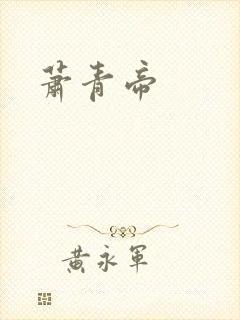 蕭青帝
黃永軍